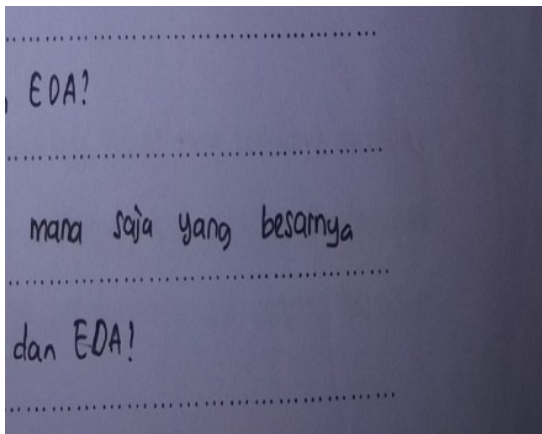 , EDA?
mana saja yang besarnya
dan EDA!